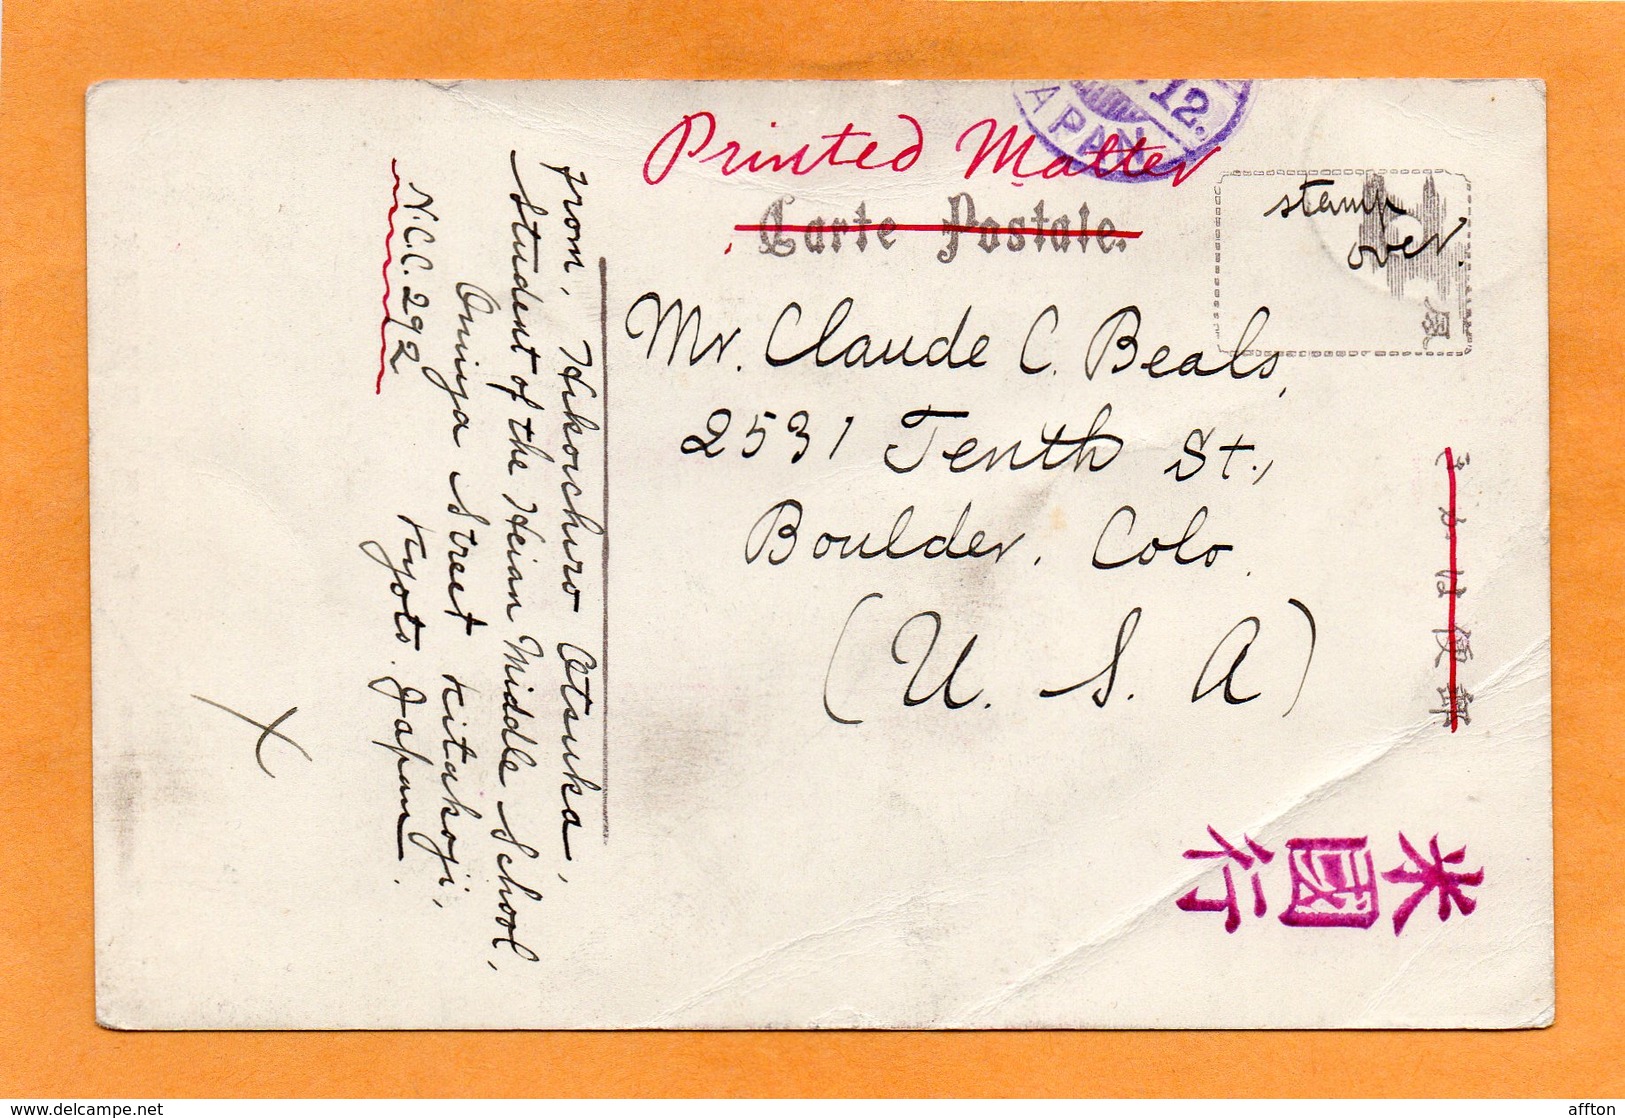 Printed Matter
Carte Postale.
APAN
12.
stamp
over.
Mr. Claude C. Beals,
2531 Tenth St.,
Boulder, Colo.
(U. S. A)
きかは便郵
米國行
From, Hikoichiro Otsuka,
Student of the Heian Middle School,
Omiya Street Kitakoji,
Kyoto. Japan.
N.C.C. 292
X
delcampe.net
affton